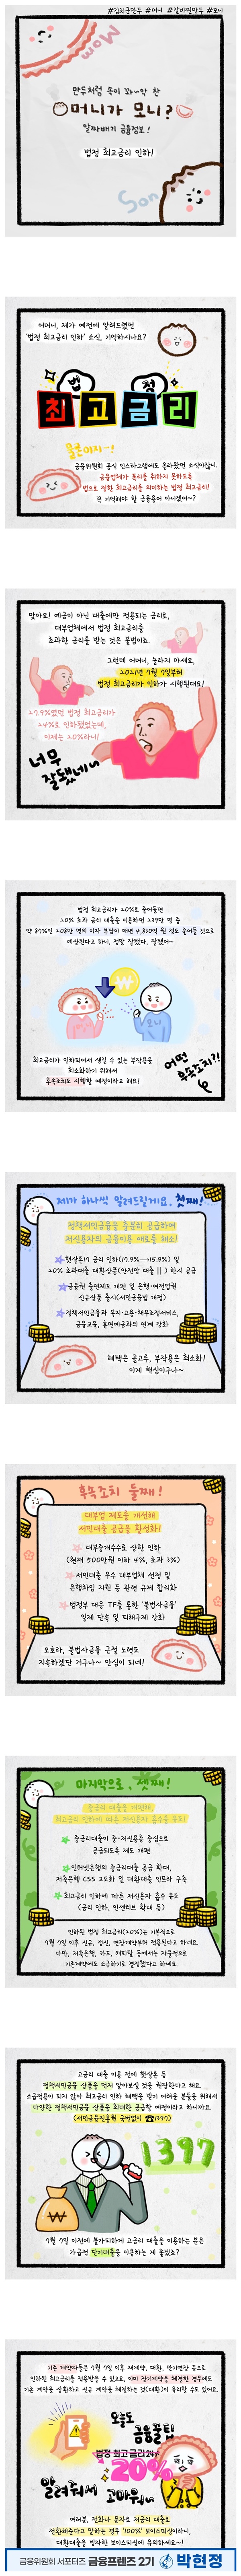 #김치군만두 #머니 #갈비찐만두 #모니
Mom
만두처럼 속이 꽈~악 찬
머니가 모니?
알짜배기 금융정보!
법정 최고금리 인하!
Son
어머니, 제가 예전에 알려드렸던
'법정 최고금리 인하' 소식, 기억하시나요?
법 정
최고금리
물론이지~!
금융위원회 공식 인스타그램에도 올라왔던 소식이잖니.
금융업체가 폭리를 취하지 못하도록
법으로 정한 최고금리를 의미하는 법정 최고금리!
꼭 기억해야 할 금융용어 아니겠어~?
맞아요! 예금이 아닌 대출에만 적용되는 금리로,
대부업체에서 법정 최고금리를
초과한 금리를 받는 것은 불법이죠.
그런데 어머니, 놀라지 마세요,
2021년 7월 7일부터
법정 최고금리가 인하가 시행된대요!
27.9%였던 법정 최고금리가
24%로 인하됐었는데,
이제는 20%라니!
너무
잘됐네~
법정 최고금리가 20%로 줄어들면
20% 초과 금리 대출을 이용하던 239만 명 중
약 87%인 208만 명의 이자 부담이 매년 4,830억 원 정도 줄어들 것으로
예상된다고 하니, 정말 잘됐다, 잘됐어~
모니
최고금리가 인하되어서 생길 수 있는 부작용을
최소화하기 위해서
후속조치도 시행할 예정이라고 해요!
어떤
후속조치?!
제가 하나씩 알려드릴게요, 첫째!
정책서민금융을 충분히 공급하여
저신용자의 금융이용 애로를 해소!
햇살론17 금리 인하(17.9%→15.9%) 및
20% 초과대출 대환상품(안전망 대출 II) 한시 공급
금융권 출연제도 개편 및 은행·여전업권
신규상품 출시(서민금융법 개정)
정책서민금융과 복지·고용·채무조정서비스,
금융교육, 휴면예금과의 연계 강화
혜택은 골고루, 부작용은 최소화!
이게 핵심이구나~
후속조치 둘째!
대부업 제도를 개선해
서민대출 공급을 활성화!
대부중개수수료 상한 인하
(현재 500만원 이하 4%, 초과 3%)
서민대출 우수 대부업체 선정 및
은행차입 지원 등 관련 규제 합리화
범정부 대응 TF를 통한 '불법사금융'
일제 단속 및 피해구제 강화
오호라, 불법사금융 근절 노력도
지속하겠단 거구나~ 안심이 되네!
마지막으로, 셋째!
중금리 대출을 개편해,
최고금리 인하에 따른 저신용자 흡수를 유도!
중금리대출이 중·저신용층 중심으로
공급되도록 제도 개편
인터넷은행의 중금리대출 공급 확대,
저축은행 CSS 고도화 및 대환대출 인프라 구축
최고금리 인하에 따른 저신용자 흡수 유도
(금리 인하, 인센티브 확대 등)
인하된 법정 최고금리(20%)는 기본적으로
7월 7일 이후 신규, 갱신, 연장계약부터 적용된다고 하네요.
다만, 저축은행, 카드, 캐피탈 등에서는 자율적으로
기존계약에도 소급하기로 결정했다고 하네요.
고금리 대출 이용 전에 햇살론 등
정책서민금융 상품을 먼저 알아보실 것을 권장한다고 해요.
소급적용이 되지 않아 최고금리 인하 혜택을 받기 어려운 분들을 위해서
다양한 정책서민금융 상품을 최대한 공급할 예정이라고 하니까요.
(서민금융진흥원 국번없이 ☎1397)
1397
7월 7일 이전에 불가피하게 고금리 대출을 이용하는 분은
가급적 단기대출을 이용하는 게 좋겠죠?
기존 계약자들은 7월 7일 이후 재계약, 대환, 만기연장 등으로
인하된 최고금리를 적용받을 수 있고요, 이미 장기계약을 체결한 경우에도
기존 계약을 상환하고 신규 계약을 체결하는 것(대환)이 유리할 수도 있어요.
오늘도
금융꿀팁
법정 최고금리 24%
20%
알려줘서
고마워~
여러분, 전화나 문자로 저금리 대출로
전환해준다고 말하는 경우 '100%' 보이스피싱이라니,
대환대출을 빙자한 보이스피싱에 유의하세요~!
금융위원회 서포터즈 금융프렌즈 2기 박현정